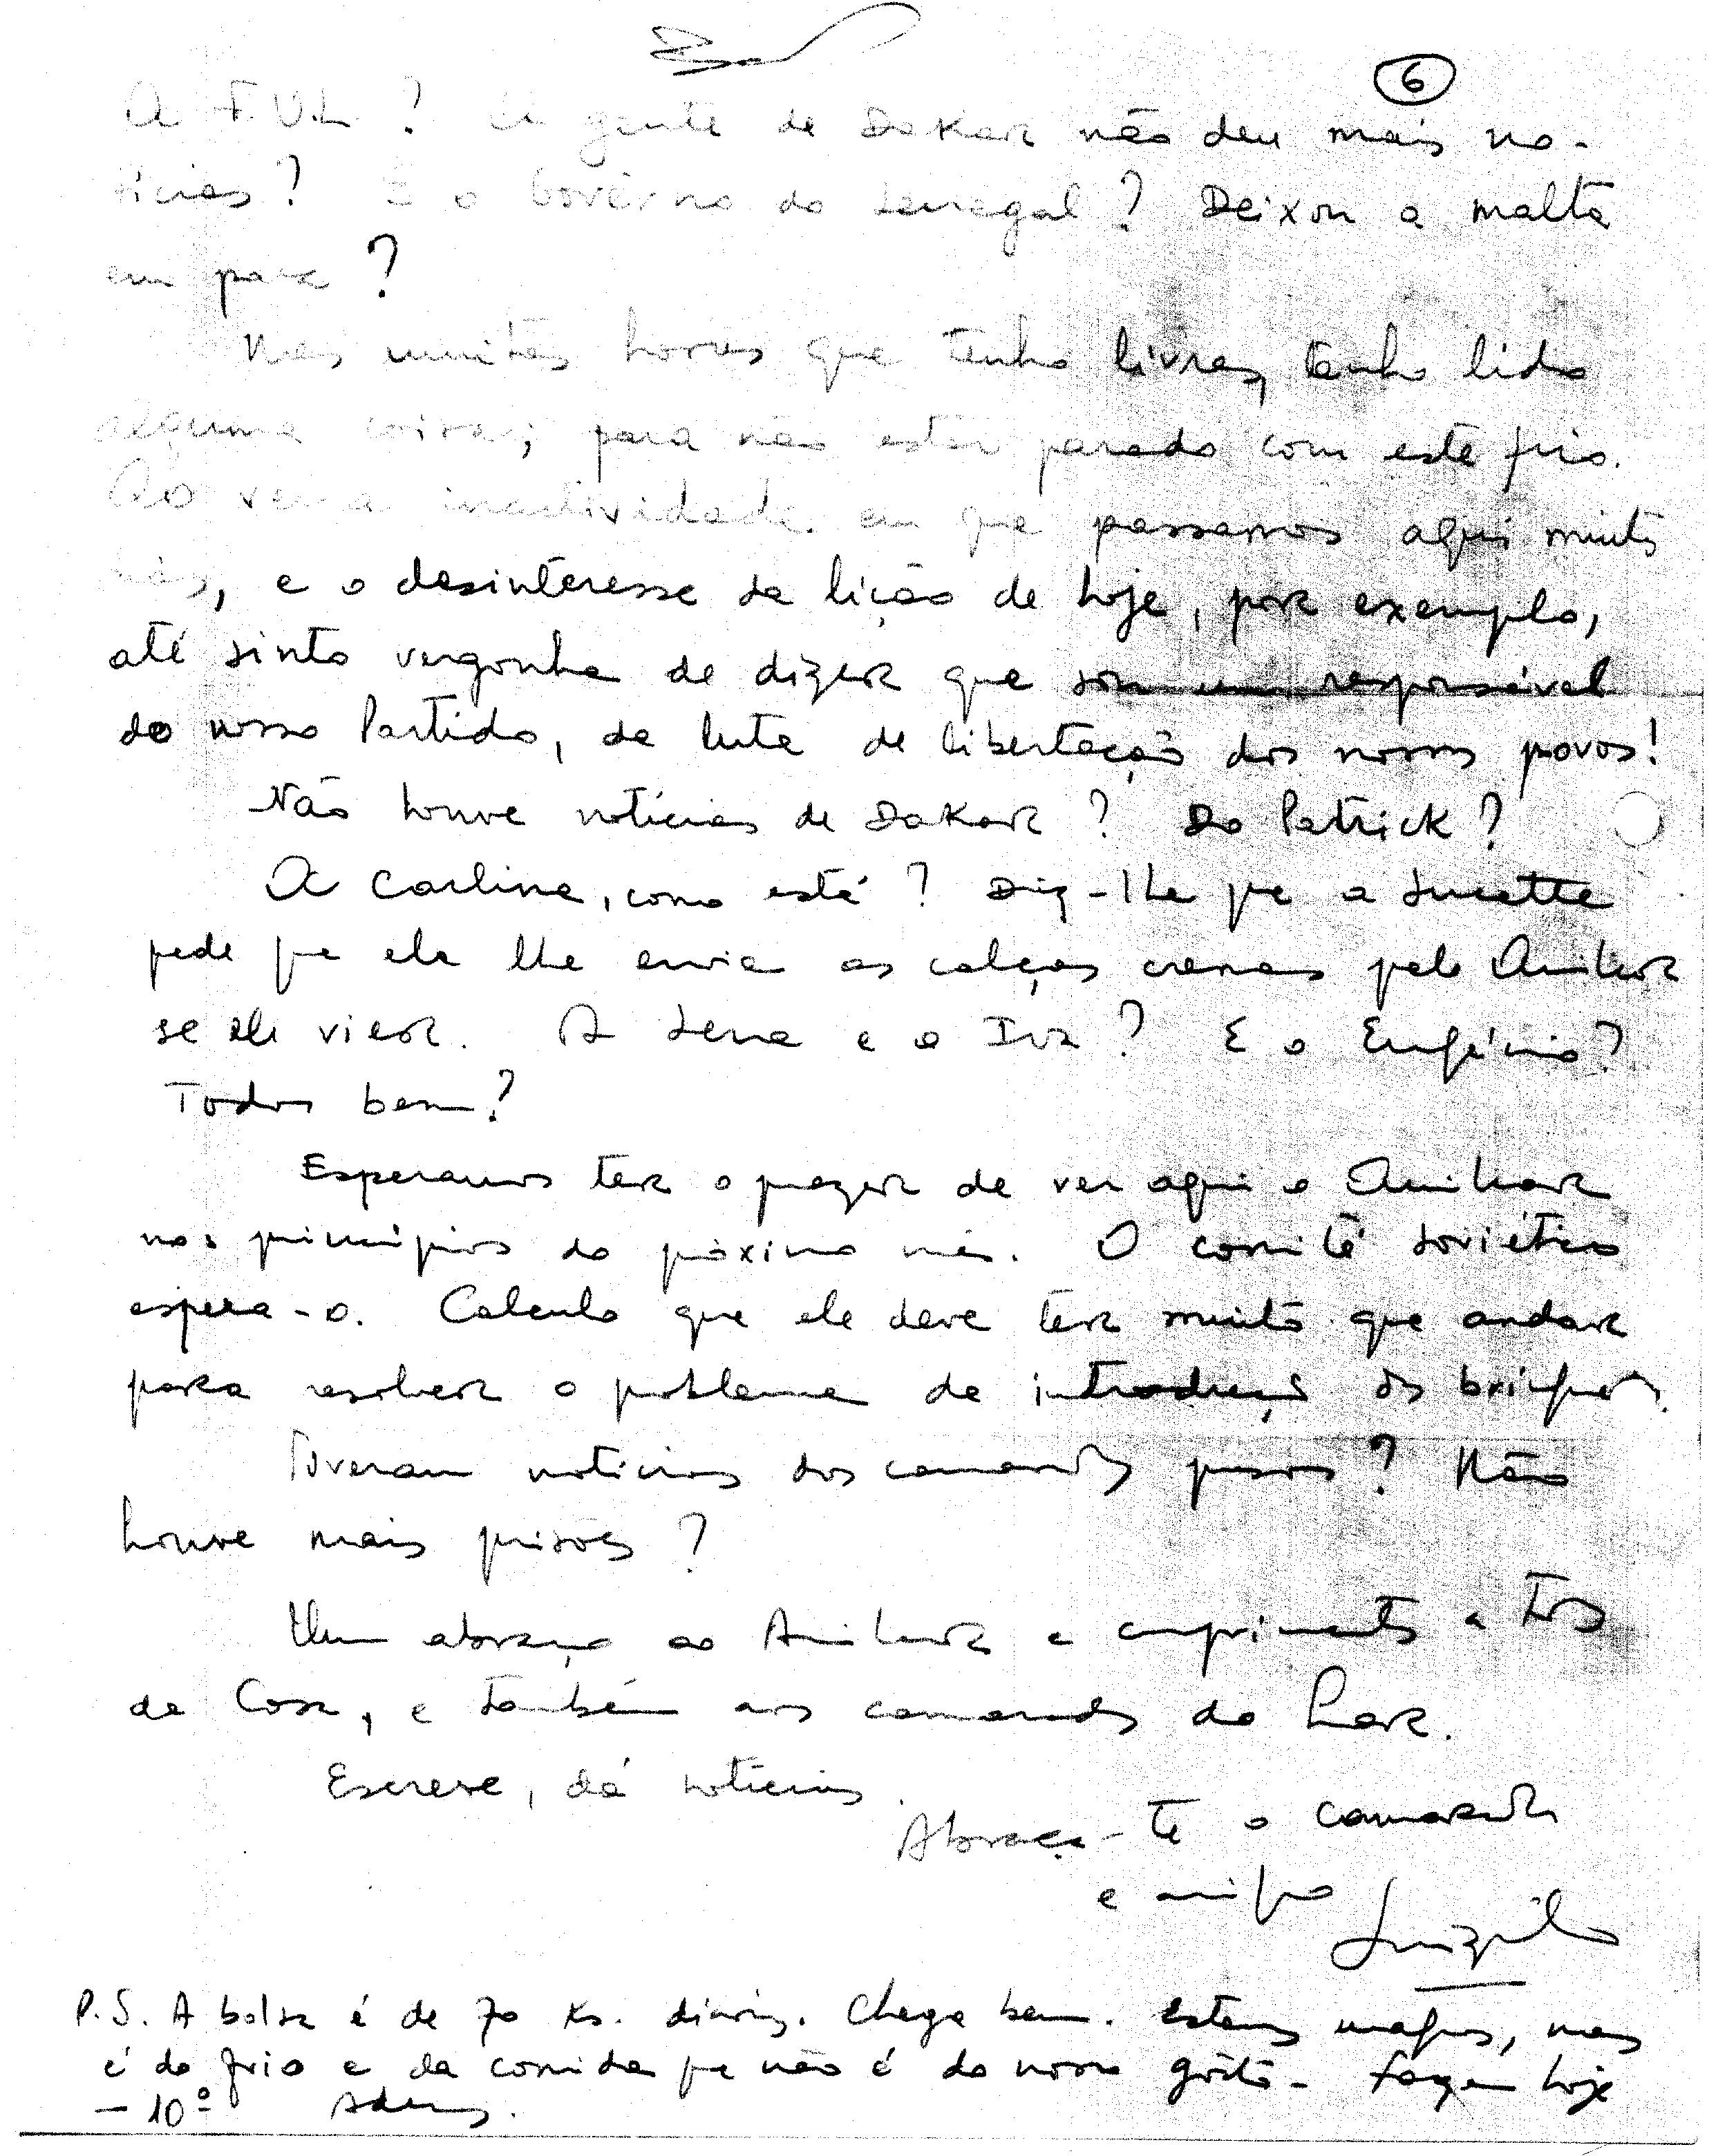 6
A F.U.L ? A gente de Dakar não deu mais no-
tícias ? E o Govêrno do Senegal ? Deixou a malta
em paz ?
Nas muitas horas que tenho livres, tenho lido
alguma coisa; para não estar parado com este frio.
Ao ver a inactividade em que passamos aqui muito
mês, e o desinteresse da lição de hoje, por exemplo,
até sinto vergonha de dizer que sou um responsável
do nosso Partido, da luta de libertação dos nossos povos!
Não houve notícias de Dakar ? Do Patrick ?
A Carline, como está ? Diz-lhe que a Lucette
pede que ela lhe envie as calças cremes pelo Amilcar
se ele vier. A Lena e a Iva ? E o Eugénio ?
Todos bem ?
Esperamos ter o prazer de ver aqui o Amilcar
nos princípios do próximo mês. O comité soviético
espera-o. Calculo que ele deve ter muito que andar
para resolver o problema de introdução dos brinquedos.
Tiveram notícias dos camaradas presos ? Não
houve mais prisões ?
Um abraço ao Amilcar e cumprimentos a todos
da Casa, e também aos camaradas do Lar.
Escreve, dá notícias.
Abraça-te o camarada
e amigo
Luizinho
P.S. A bolsa é de 70 Ks. diários. Chega bem. Estamos magros, mas
é do frio e da comida que não é do nosso gôsto. Fazem hoje
- 10º Adeus.